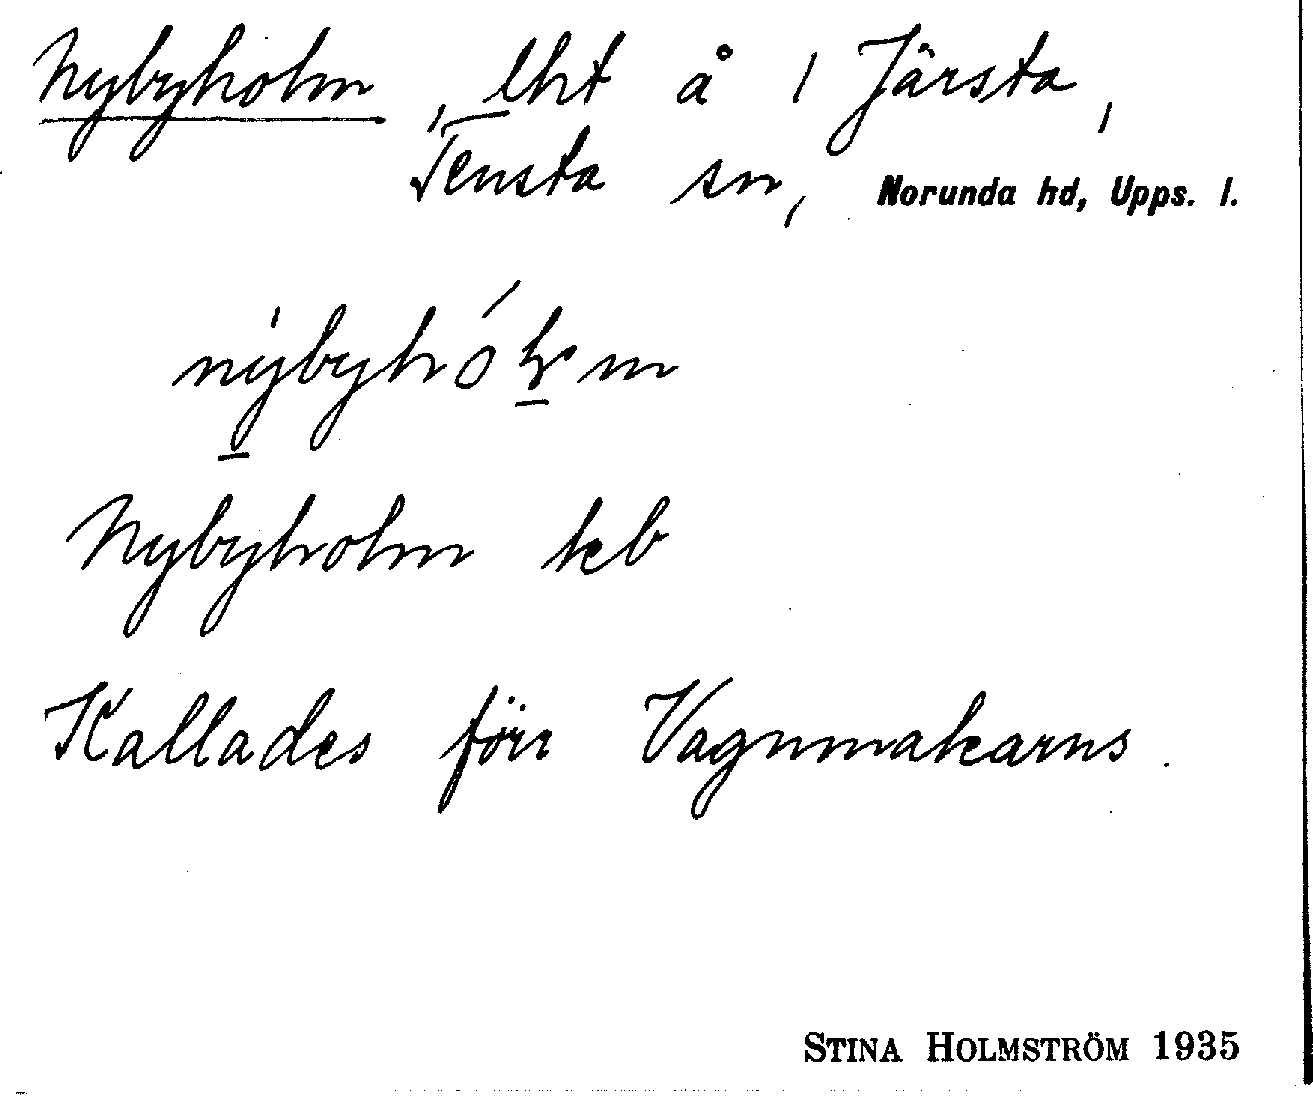 Nybyholm, lht å 1 Järsta,
Tensta sn, Norunda hd, Upps. l.
Nybyholm kb
Kallades förr Vagnmakarns.
STINA HOLMSTRÖM 1935